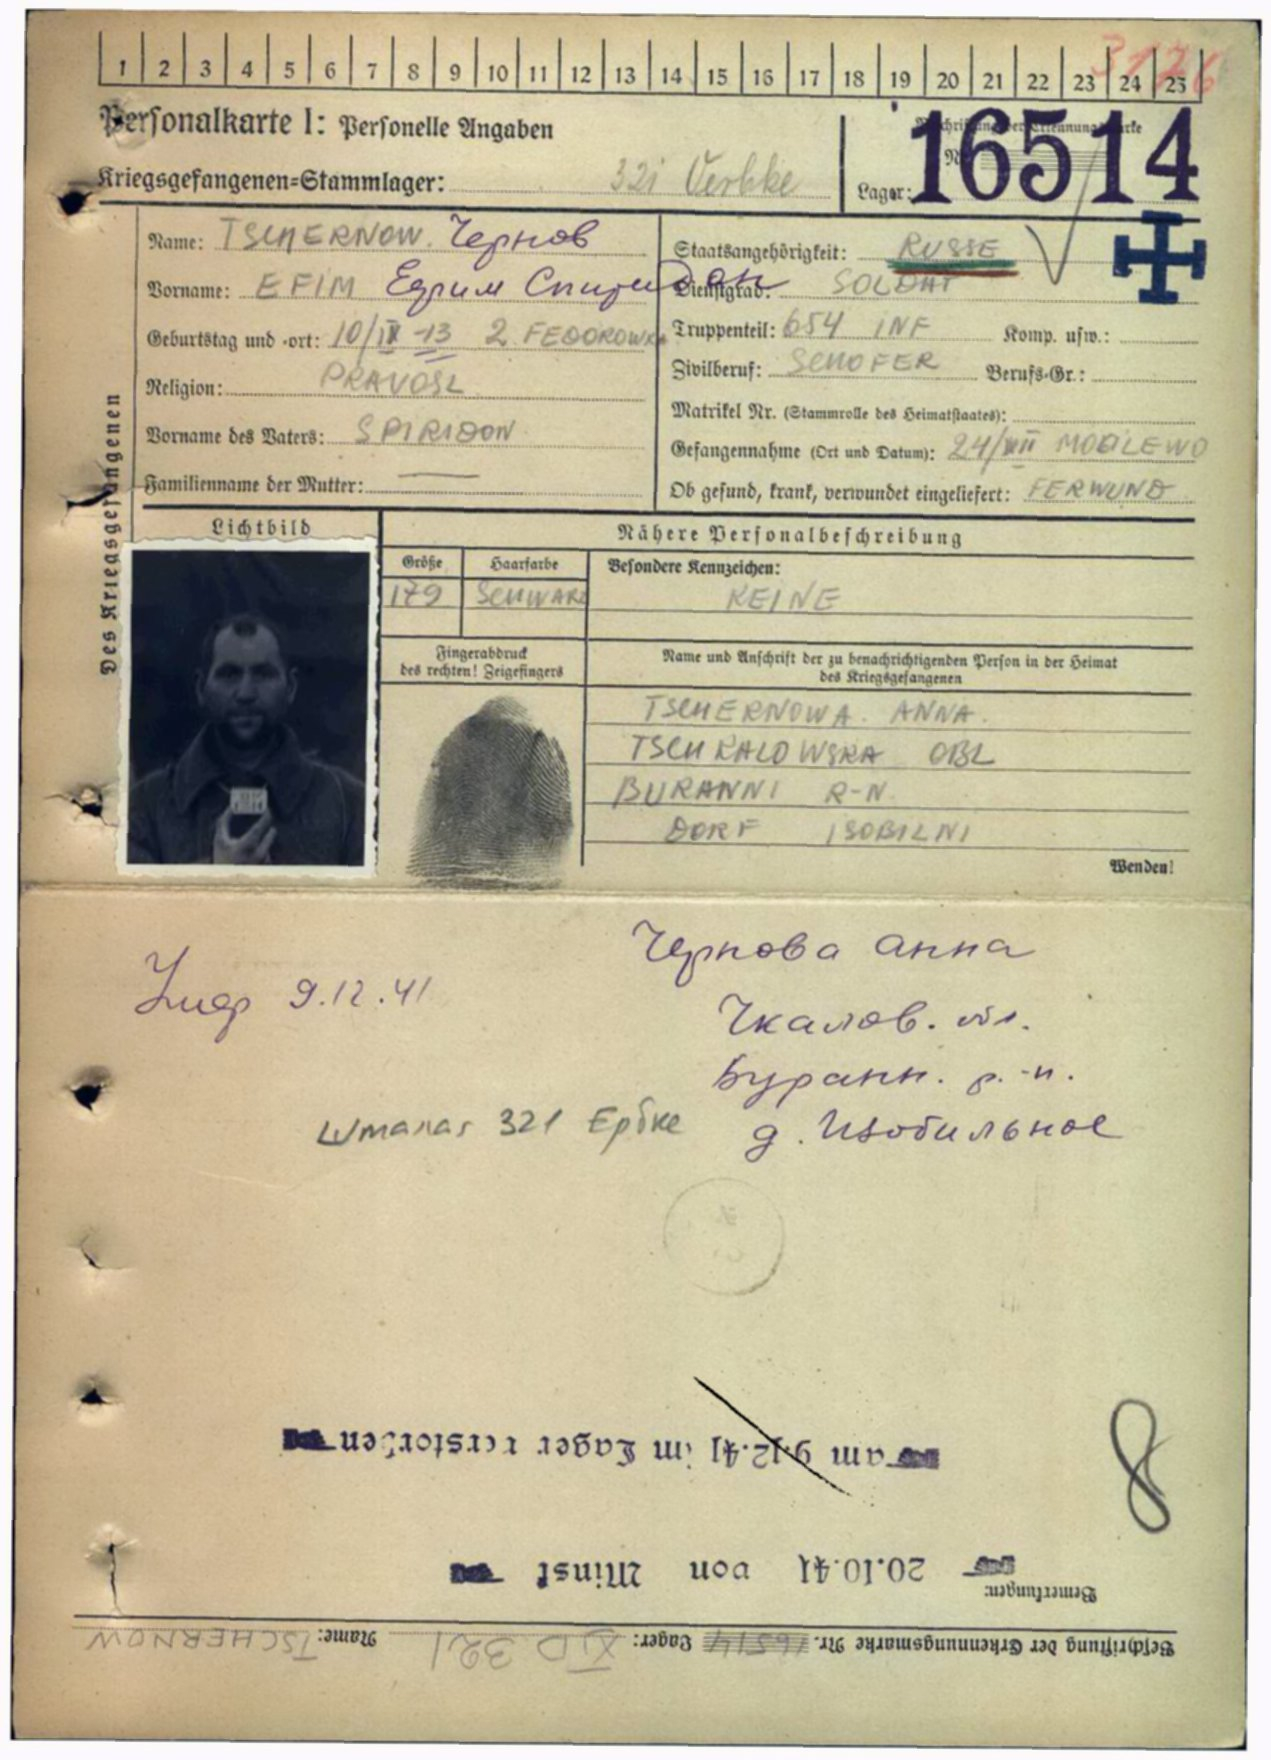 1 2 3 4 5 6 7 8 9 10 11 12 13 14 15 16 17 18 19 20 21 22 23 24 25
3176
Personalkarte I: Personelle Angaben
Kriegsgefangenen=Stammlager: 321 Oerbke
Lager: 16514
Des Kriegsgefangenen
Name: TSCHERNOW. Чернов
Vorname: EFIM Ефим Спиридон
Geburtstag und =ort: 10/IV -13 2. FEDOROWKA
Religion: PRAVOSL
Vorname des Vaters: SPIRIDON
Familienname der Mutter: —
Staatsangehörigkeit: RUSSE
Dienstgrad: SOLDAT
Truppenteil: 654 INF Komp. usw.:
Zivilberuf: SCHOFER Berufs=Gr.:
Matrikel Nr. (Stammrolle des Heimatstaates):
Gefangennahme (Ort und Datum): 24/VII MOGILEWO
Ob gesund, krank, verwundet eingeliefert: FERWUND
Lichtbild
Nähere Personalbeschreibung
Größe Haarfarbe Besondere Kennzeichen:
179 SCHWARZ KEINE
Fingerabdruck
des rechten! Zeigefingers
Name und Anschrift der zu benachrichtigenden Person in der Heimat
des Kriegsgefangenen
TSCHERNOWA. ANNA.
TSCHKALOWSKA OBL
BURANNI R-N.
DORF ISOBILNI
Wenden!
Чернова Анна
Умер 9.12.41
Чкалов. обл.
Буранн. р-н.
Шталаг 321 Ербке
д. Изобильное
8
am 9.12.41 im Lager verstorben
20.10.41 von Minsk
Bemerkungen:
Beschriftung der Erkennungsmarke Nr. 16514 Lager: XI D 321 Name: TSCHERNOW